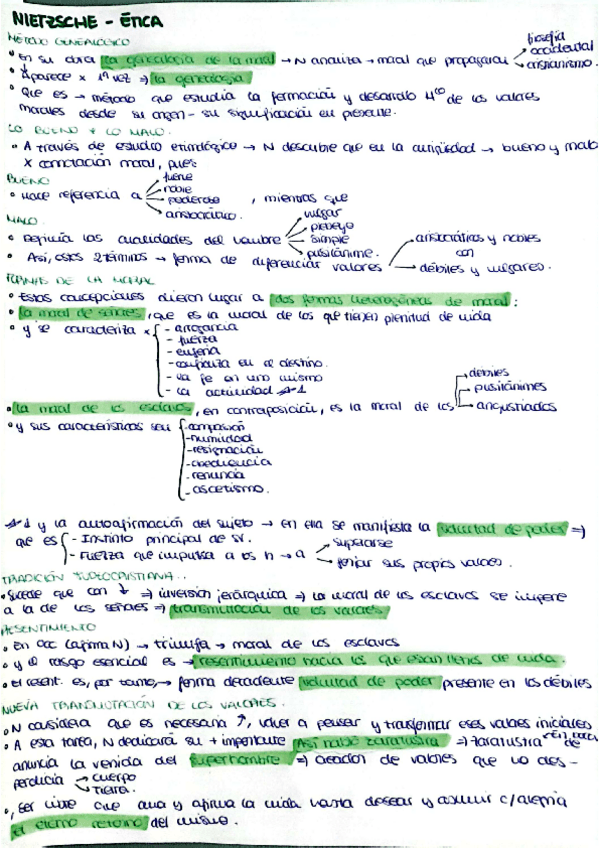 NIETZSCHE - ÉTICA
MÉTODO GENEALÓGICO
filosofía
• En su obra la genealogía de la moral → N analiza → moral que propagarai occidental
cristianismo.
• Aparece x 1ª vez ⇒ la genealogía
• Que es → método que estudia la formación y desarrollo de los valores
morales desde su origen - su significación en presente.
LO BUENO Y LO MALO.
• A través de estudio etimológico → N descubre que en la antigüedad → bueno y malo
X connotación moral, pues:
BUENO
fuerte
noble
• Hace referencia a poderoso , mientras que
aristocrático.
MALO.
vulgar
plebeyo
• Definía las cualidades del hombre simple
pusilánime.
aristocráticos y nobles
• Así, estos 2 términos → forma de diferenciar valores con
débiles y vulgares.
FORMAS DE LA MORAL
• Estas concepciones dieron lugar a dos formas heterogéneas de moral:
• la moral de señores, que es la moral de los que tienen plenitud de vida
• y se caracteriza x - arrogancia
- fuerza
- euforia
- confianza en el destino.
- la fe en uno mismo
- la actividad
débiles
pusilánimes
• la moral de los esclavos, en contraposición, es la moral de los angustiados
• y sus características son - compasión
- humildad
- resignación
- obediencia
- renuncia
- ascetismo.
y la autoafirmación del sujeto → en ella se manifiesta la voluntad de poder ⇒
que es - Instinto principal de sv.
- Fuerza que impulsa a los h → a superarse
forjar sus propios valores.
TRADICIÓN JUDEOCRISTIANA.
• Sucede que con ↓ ⇒ inversión jerárquica ⇒ la moral de los esclavos se impone
a la de los señores ⇒ transmutación de los valores
RESENTIMIENTO
• En occ (afirma N) → triunfa → moral de los esclavos
• y el rasgo esencial es → resentimiento hacia los que están llenos de vida.
• el resent. es, por tanto, → forma decadente voluntad de poder presente en los débiles
NUEVA TRANSMUTACIÓN DE LOS VALORES.
• N considera que es necesario ↑, volver a pensar y transformar esos valores iniciales
• A esta tarea, N dedicará su + importante Así habló Zaratustra ⇒ Zaratustra
anuncia la venida del superhombre ⇒ creador de valores que no des-
perdicia → cuerpo
→ tierra.
•, ser libre que ama y afirma la vida hasta desear y asumir c/alegría
el eterno retorno del mismo.